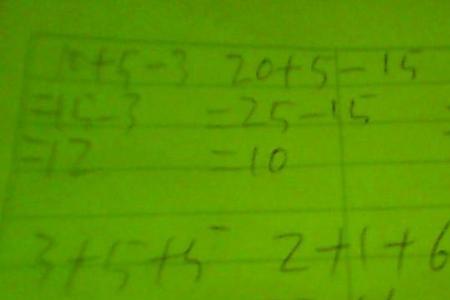 10+5-3 20+5-15
=15-3 =25-15
=12 =10
3+5+5 2+1+6